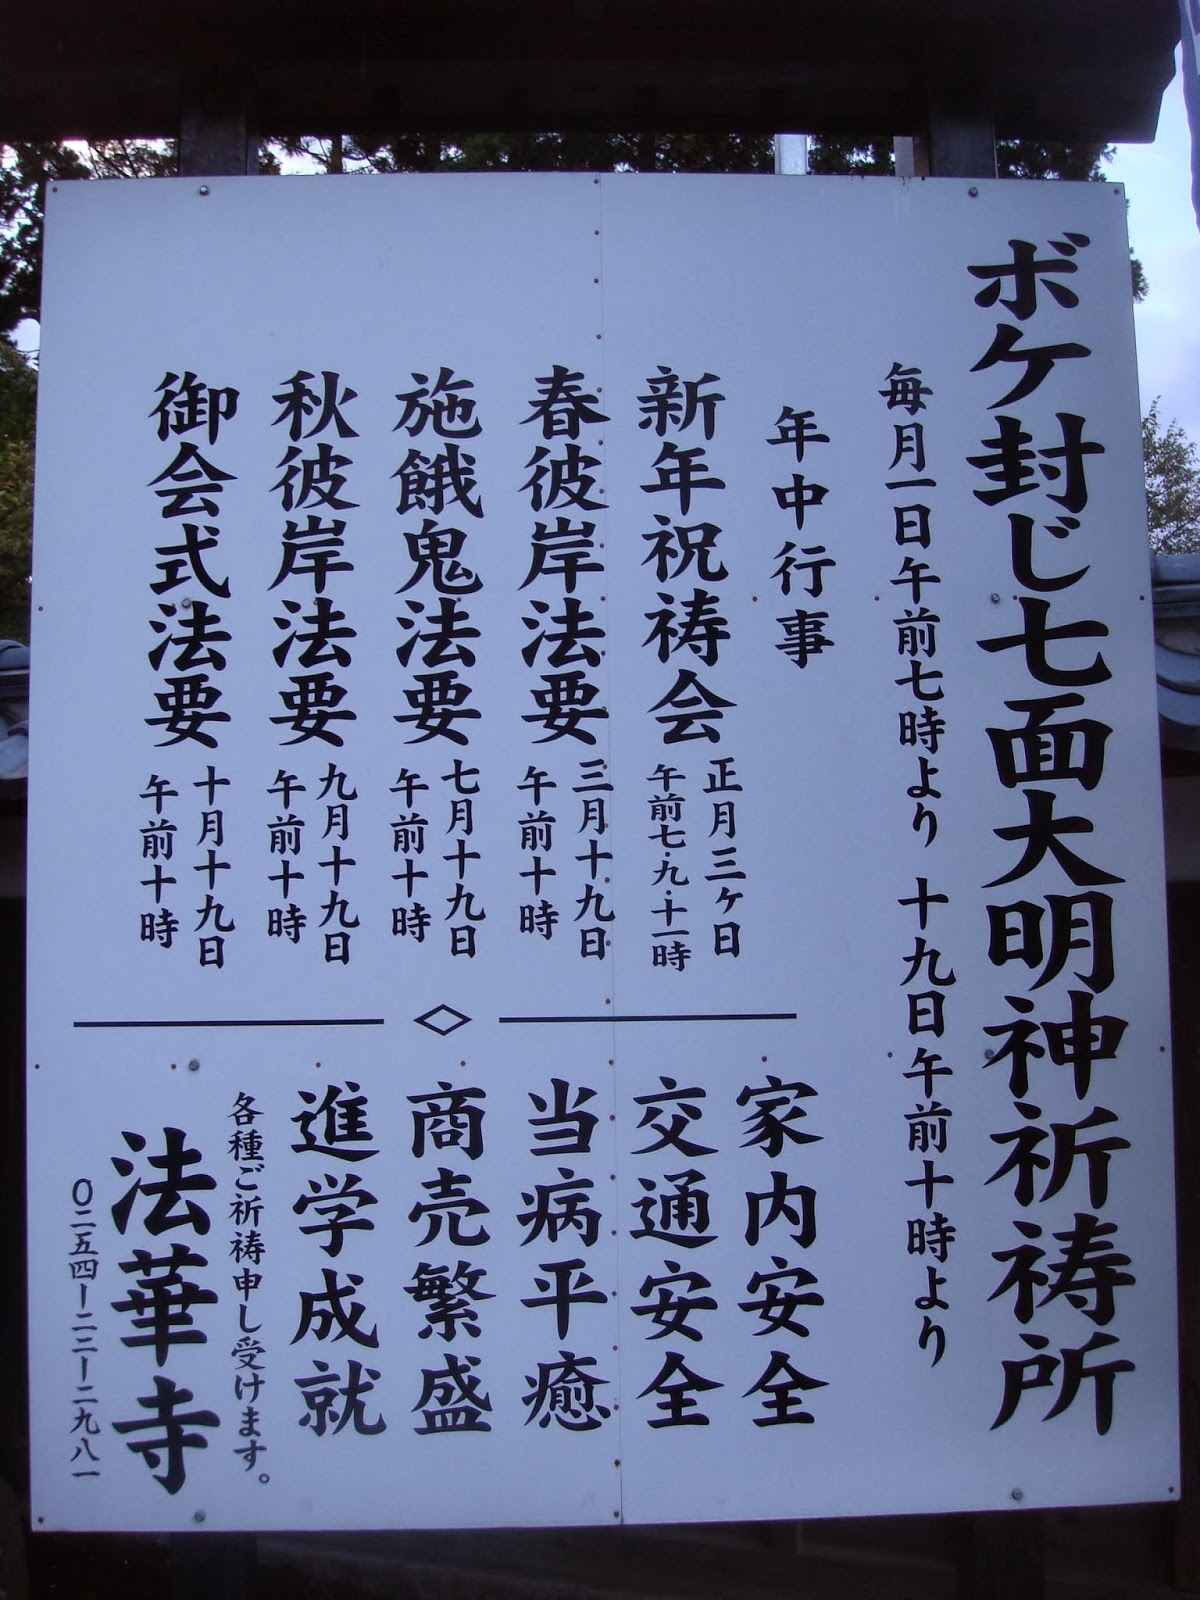 ボケ封じ七面大明神祈祷所
毎月一日午前七時より 十九日午前十時より
年中行事
新年祝祷会
正月三ヶ日
午前七・九・十一時
春彼岸法要
三月十九日
午前十時
施餓鬼法要
七月十九日
午前十時
秋彼岸法要
九月十九日
午前十時
御会式法要
十月十九日
午前十時
家内安全
交通安全
当病平癒
商売繁盛
進学成就
各種ご祈祷申し受けます。
法華寺
〇二五四ー二二ー二九八一